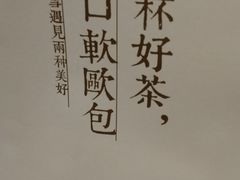 杯好茶，
口軟歐包
遇見兩种美好